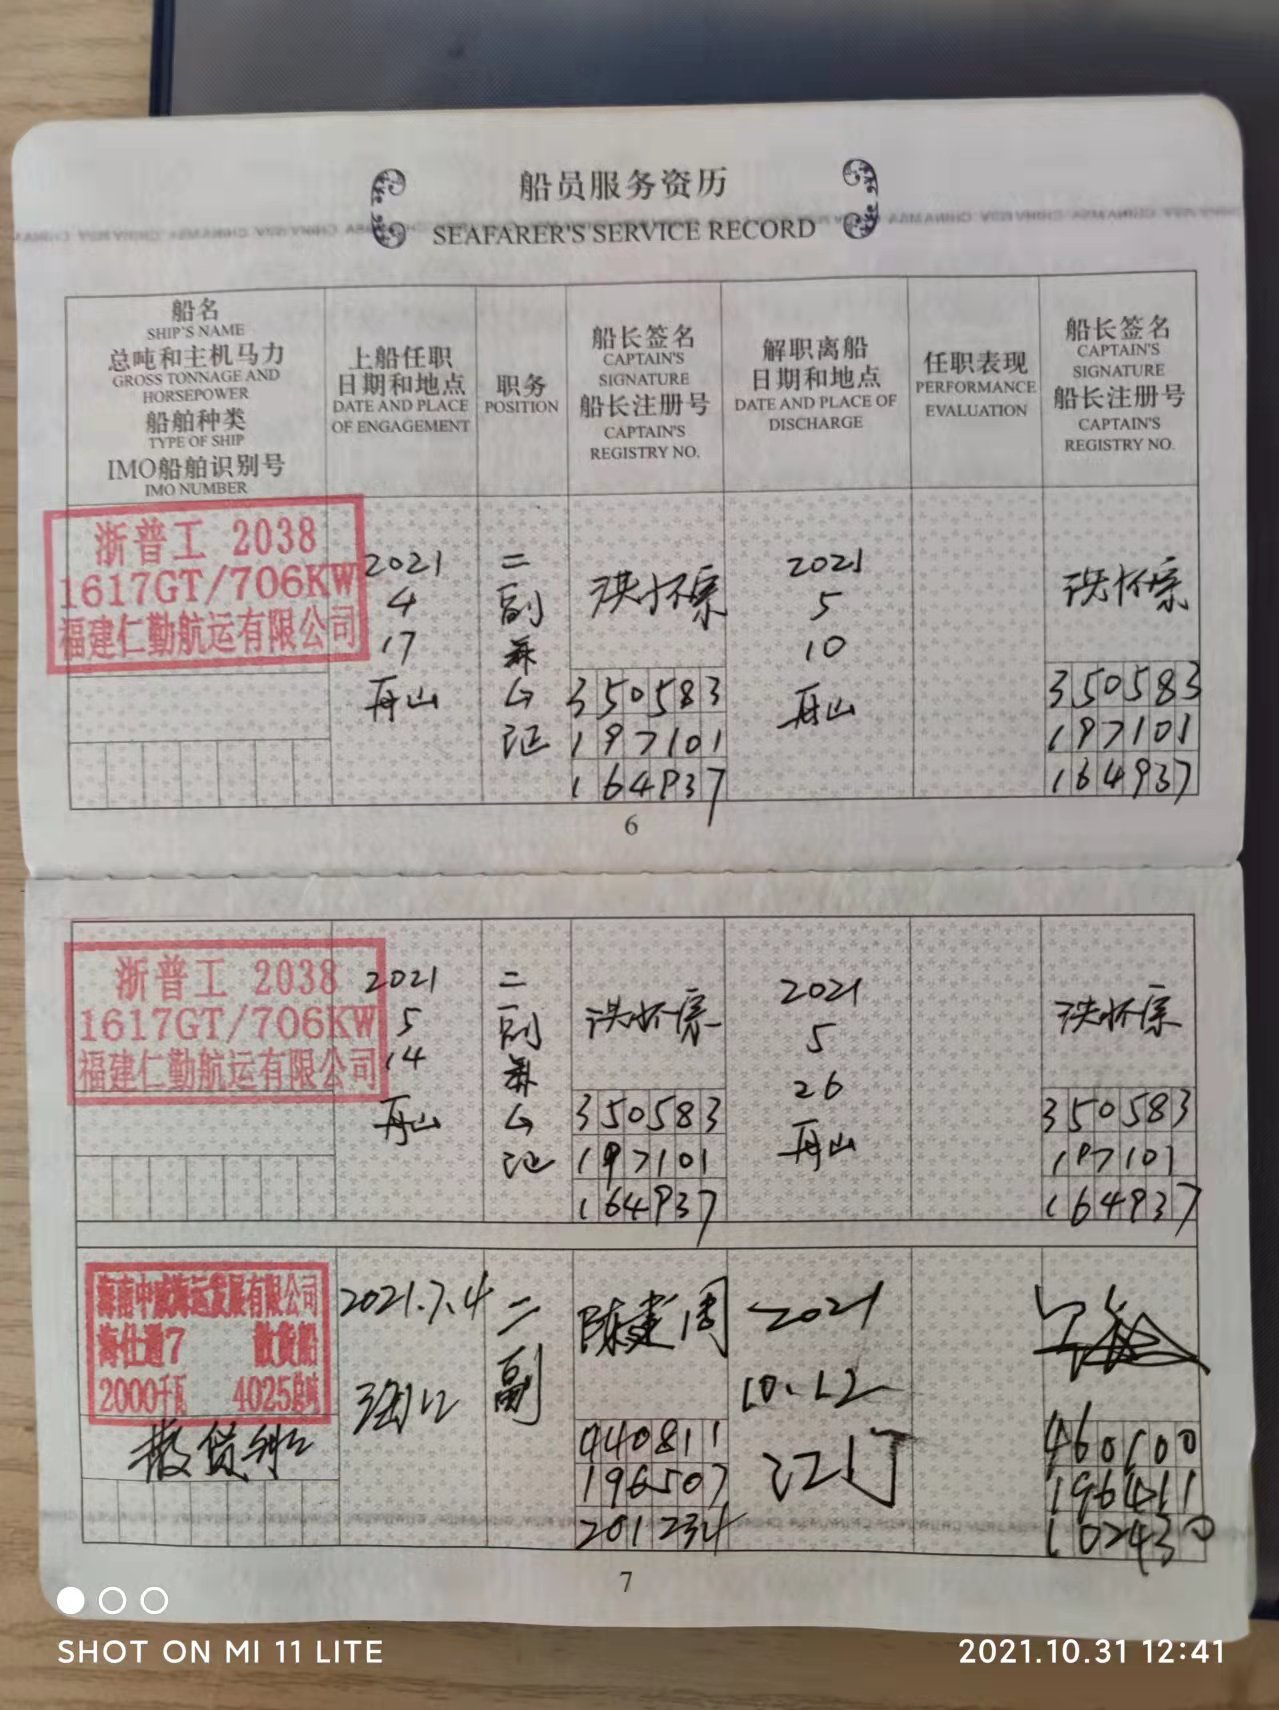 船员服务资历
SEAFARER'S SERVICE RECORD
船名
SHIP'S NAME
总吨和主机马力
GROSS TONNAGE AND
HORSEPOWER
船舶种类
TYPE OF SHIP
IMO船舶识别号
IMO NUMBER
上船任职
日期和地点
DATE AND PLACE
OF ENGAGEMENT
职务
POSITION
船长签名
CAPTAIN'S
SIGNATURE
船长注册号
CAPTAIN'S
REGISTRY NO.
解职离船
日期和地点
DATE AND PLACE OF
DISCHARGE
任职表现
PERFORMANCE
EVALUATION
船长签名
CAPTAIN'S
SIGNATURE
船长注册号
CAPTAIN'S
REGISTRY NO.
浙普工 2038
1617GT/706KW
福建仁勤航运有限公司
2021
4
17
舟山
二
副
洪怀宗
350583
197101
164937
2021
5
10
舟山
洪怀宗
350583
197101
164937
6
浙普工 2038
1617GT/706KW
福建仁勤航运有限公司
2021
5
14
舟山
二
副
洪怀宗
350583
197101
164937
2021
5
26
舟山
洪怀宗
350583
197101
164937
海南中威海运发展有限公司
海仕通7 散货船
2000千瓦 4025总吨
散货船
2021.7.4
二
副
陈建周
440811
196507
201234
2021
10.12
江门
460100
196411
102430
7
SHOT ON MI 11 LITE
2021.10.31 12:41